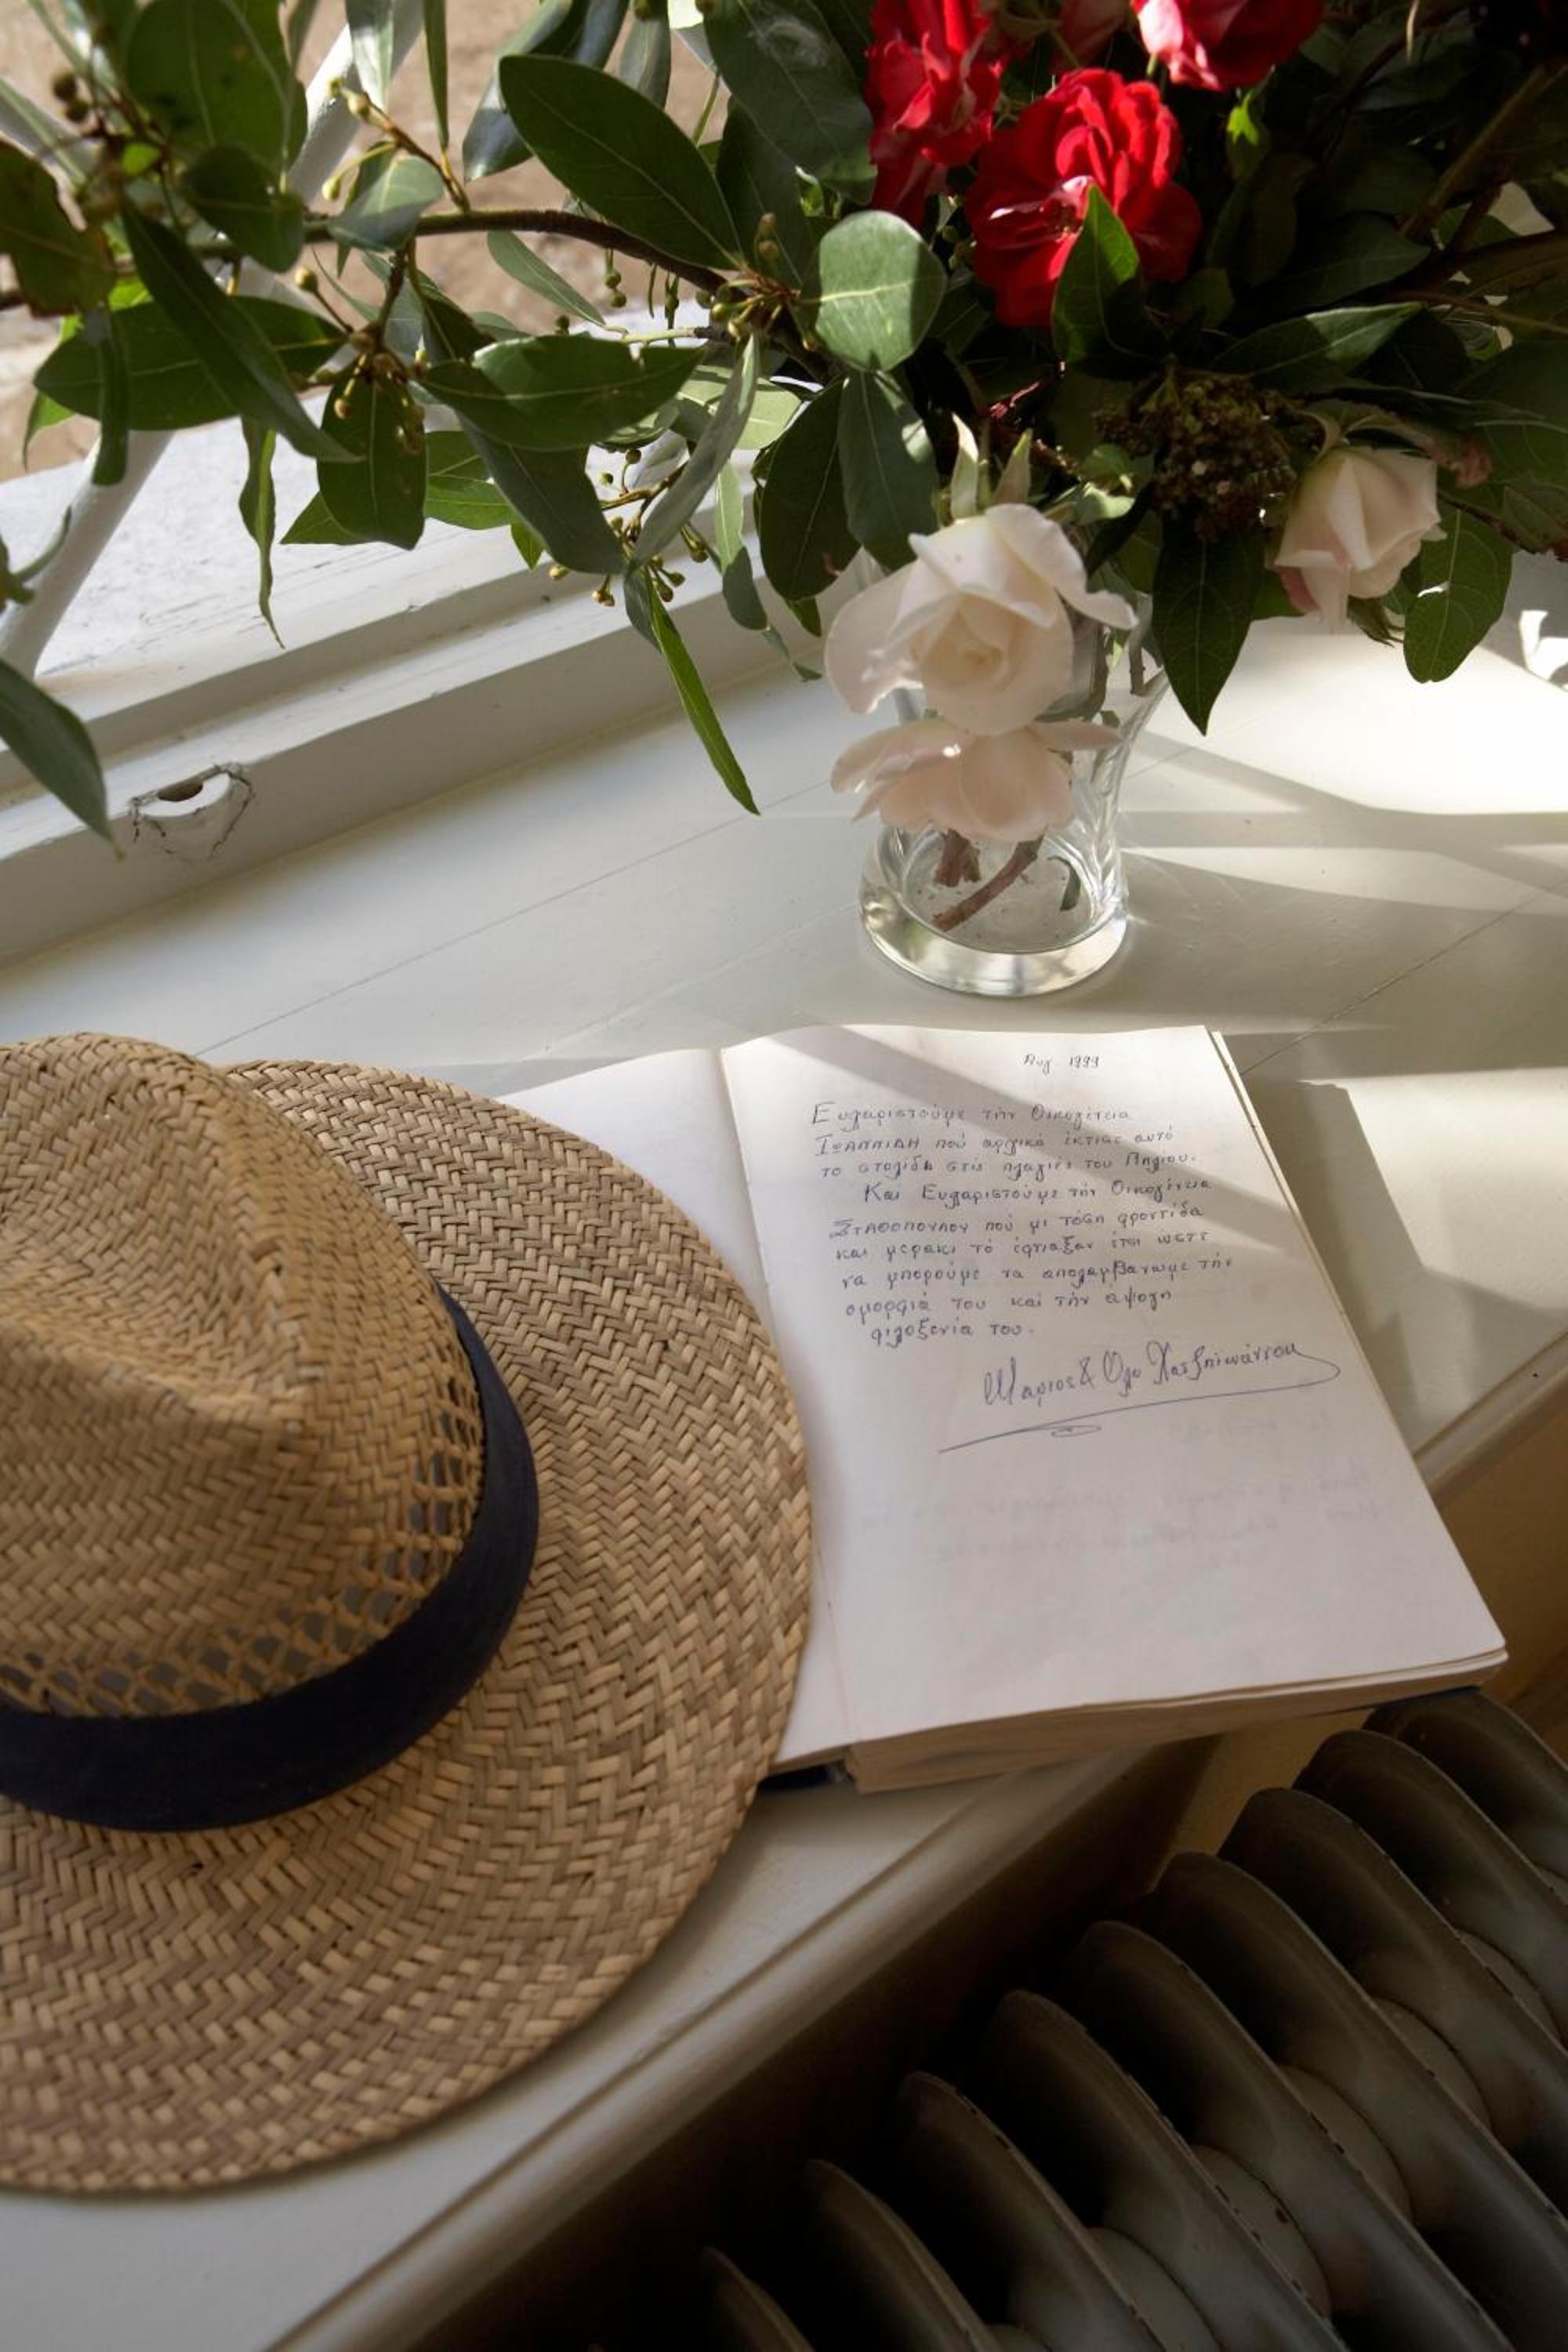 Αυγ 1999
Ευχαριστούμε τήν Οικογένεια
ΙΩΑΝΝΙΔΗ πού αρχικά έκτισε αυτό
το στολίδι στίς πλαγιές του Πηλίου.
Και Ευχαριστούμε τήν Οικογένεια
ΣΤΑΘΟΠΟΥΛΟΥ πού με τόση φροντίδα
και μεράκι τό έφτιαξαν έτσι ώστε
να μπορούμε να απολαμβάνωμε τήν
ομορφιά του καί τήν άψογη
φιλοξενία του.
Μαριος & Όλγα Χατζηιωάννου